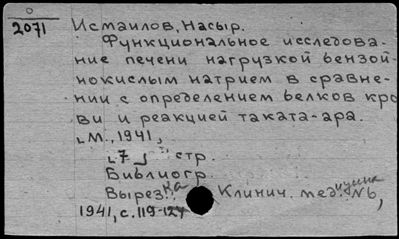 0
2071
Исмаилов, Насыр.
Функциональное исследова-
ние печени нагрузкой бензой-
нокислым натрием в сравне-
нии с определением белков кро
ви и реакцией таката-ара.
М., 1941,
7 стр.
Библиогр.
Вырезка Клинич. медицина № 6,
1941, с. 119-124